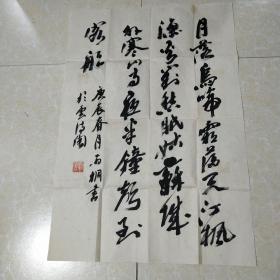 月落烏啼霜滿天江楓
漁火對愁眠姑蘇城
外寒山寺夜半鐘聲到
客船
庚辰春月雨桐書
於